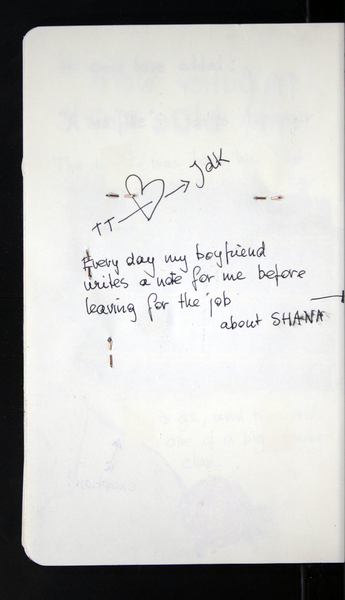 JdK
TT
Every day my boyfriend
writes a note for me before
leaving for the job
about SHANA